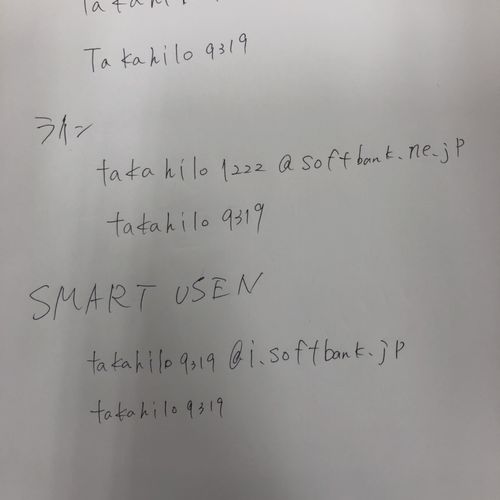 Takahilo 9319
ライン
takahilo 1222 @softbank.ne.jp
takahilo 9319
SMART USEN
takahilo 9319 @i.softbank.jp
takahilo 9319